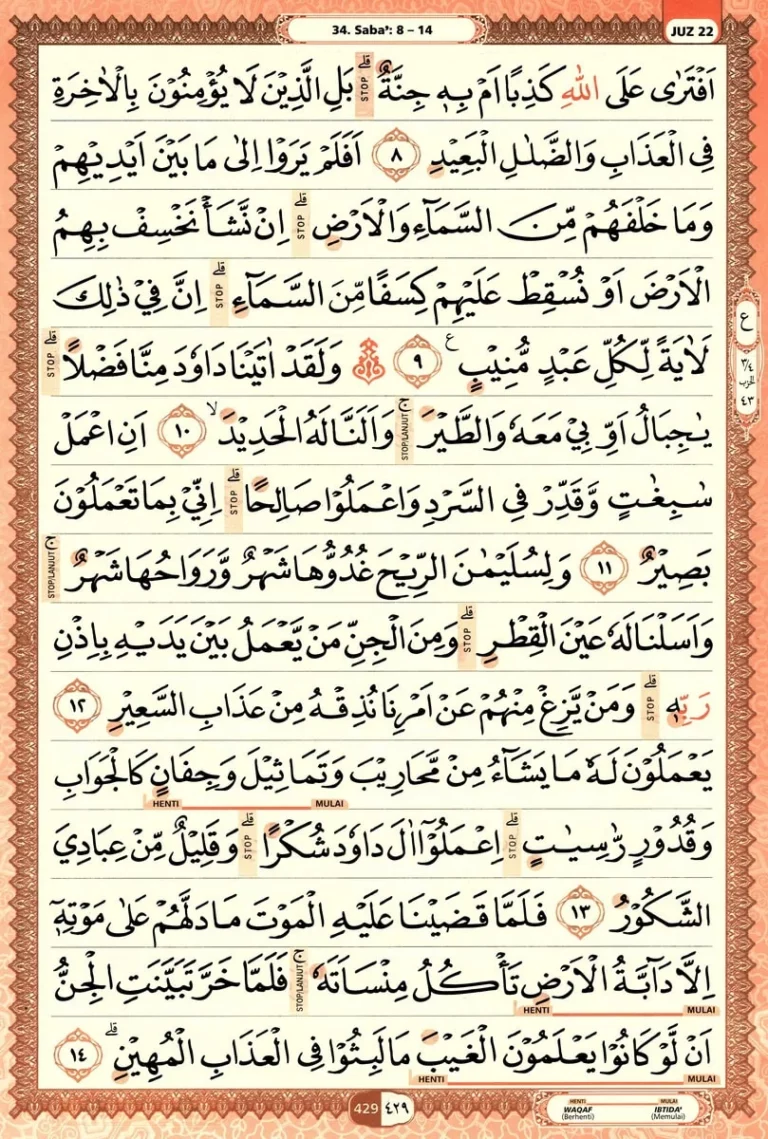 34. Saba': 8 – 14
JUZ 22
اَفْتَرٰى عَلَى اللّٰهِ كَذِبًا اَمْ بِهٖ جِنَّةٌ ۗ بَلِ الَّذِيْنَ لَا يُؤْمِنُوْنَ بِالْاٰخِرَةِ
فِى الْعَذَابِ وَالضَّلٰلِ الْبَعِيْدِ ٨ اَفَلَمْ يَرَوْا اِلٰى مَا بَيْنَ اَيْدِيْهِمْ
وَمَا خَلْفَهُمْ مِّنَ السَّمَاۤءِ وَالْاَرْضِ ۗ اِنْ نَّشَأْ نَخْسِفْ بِهِمُ
الْاَرْضَ اَوْ نُسْقِطْ عَلَيْهِمْ كِسَفًا مِّنَ السَّمَاۤءِ ۗ اِنَّ فِيْ ذٰلِكَ
لَاٰيَةً لِّكُلِّ عَبْدٍ مُّنِيْبٍ ࣖ ٩ ۞ وَلَقَدْ اٰتَيْنَا دَاوٗدَ مِنَّا فَضْلًا ۗ
يٰجِبَالُ اَوِّبِيْ مَعَهٗ وَالطَّيْرَ ۚ وَاَلَنَّا لَهُ الْحَدِيْدَ ۙ ١٠ اَنِ اعْمَلْ
سٰبِغٰتٍ وَّقَدِّرْ فِى السَّرْدِ وَاعْمَلُوْا صَالِحًا ۗ اِنِّيْ بِمَا تَعْمَلُوْنَ
بَصِيْرٌ ١١ وَلِسُلَيْمٰنَ الرِّيْحَ غُدُوُّهَا شَهْرٌ وَّرَوَاحُهَا شَهْرٌ ۚ
وَاَسَلْنَا لَهٗ عَيْنَ الْقِطْرِ ۗ وَمِنَ الْجِنِّ مَنْ يَّعْمَلُ بَيْنَ يَدَيْهِ بِاِذْنِ
رَبِّهٖ ۗ وَمَنْ يَّزِغْ مِنْهُمْ عَنْ اَمْرِنَا نُذِقْهُ مِنْ عَذَابِ السَّعِيْرِ ١٢
يَعْمَلُوْنَ لَهٗ مَا يَشَاۤءُ مِنْ مَّحَارِيْبَ وَتَمَاثِيْلَ وَجِفَانٍ كَالْجَوَابِ
HENTI MULAI
وَقُدُوْرٍ رّٰسِيٰتٍ ۗ اِعْمَلُوْٓا اٰلَ دَاوٗدَ شُكْرًا ۗ وَقَلِيْلٌ مِّنْ عِبَادِيَ
الشَّكُوْرُ ١٣ فَلَمَّا قَضَيْنَا عَلَيْهِ الْمَوْتَ مَا دَلَّهُمْ عَلٰى مَوْتِهٖٓ
اِلَّا دَاۤبَّةُ الْاَرْضِ تَأْكُلُ مِنْسَاَتَهٗ ۚ فَلَمَّا خَرَّ تَبَيَّنَتِ الْجِنُّ
HENTI MULAI
اَنْ لَّوْ كَانُوْا يَعْلَمُوْنَ الْغَيْبَ مَا لَبِثُوْا فِى الْعَذَابِ الْمُهِيْنِ ۗ ١٤
HENTI MULAI
ع
٣/٤
الحزب
٤٣
429 ٤٢٩
HENTI MULAI
WAQAF IBTIDA'
(Berhenti) (Memulai)